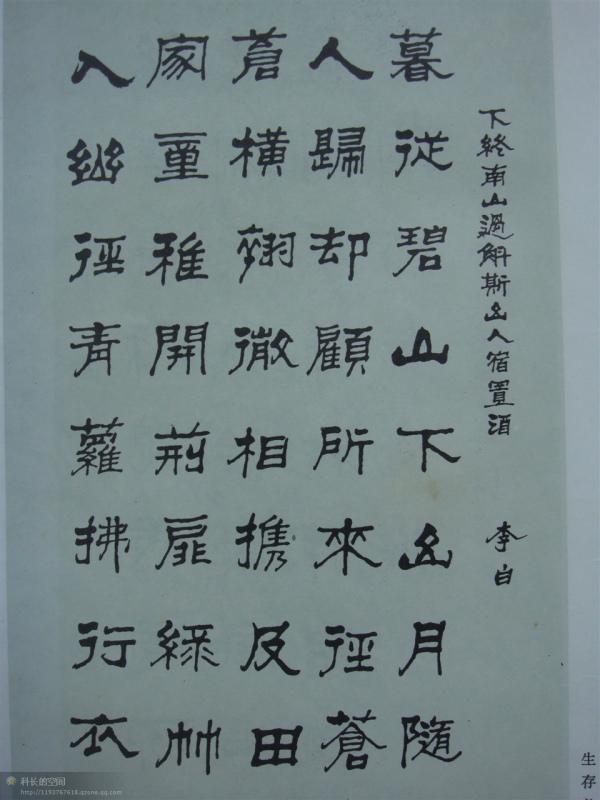 下終南山過斛斯山人宿置酒 李白
暮從碧山下山月隨
人歸却顧所來徑蒼
蒼橫翠微相携及田
家童稚開荆扉綠竹
入幽徑青蘿拂行衣
生存
科长的空间
http://1193767618.qzone.qq.com